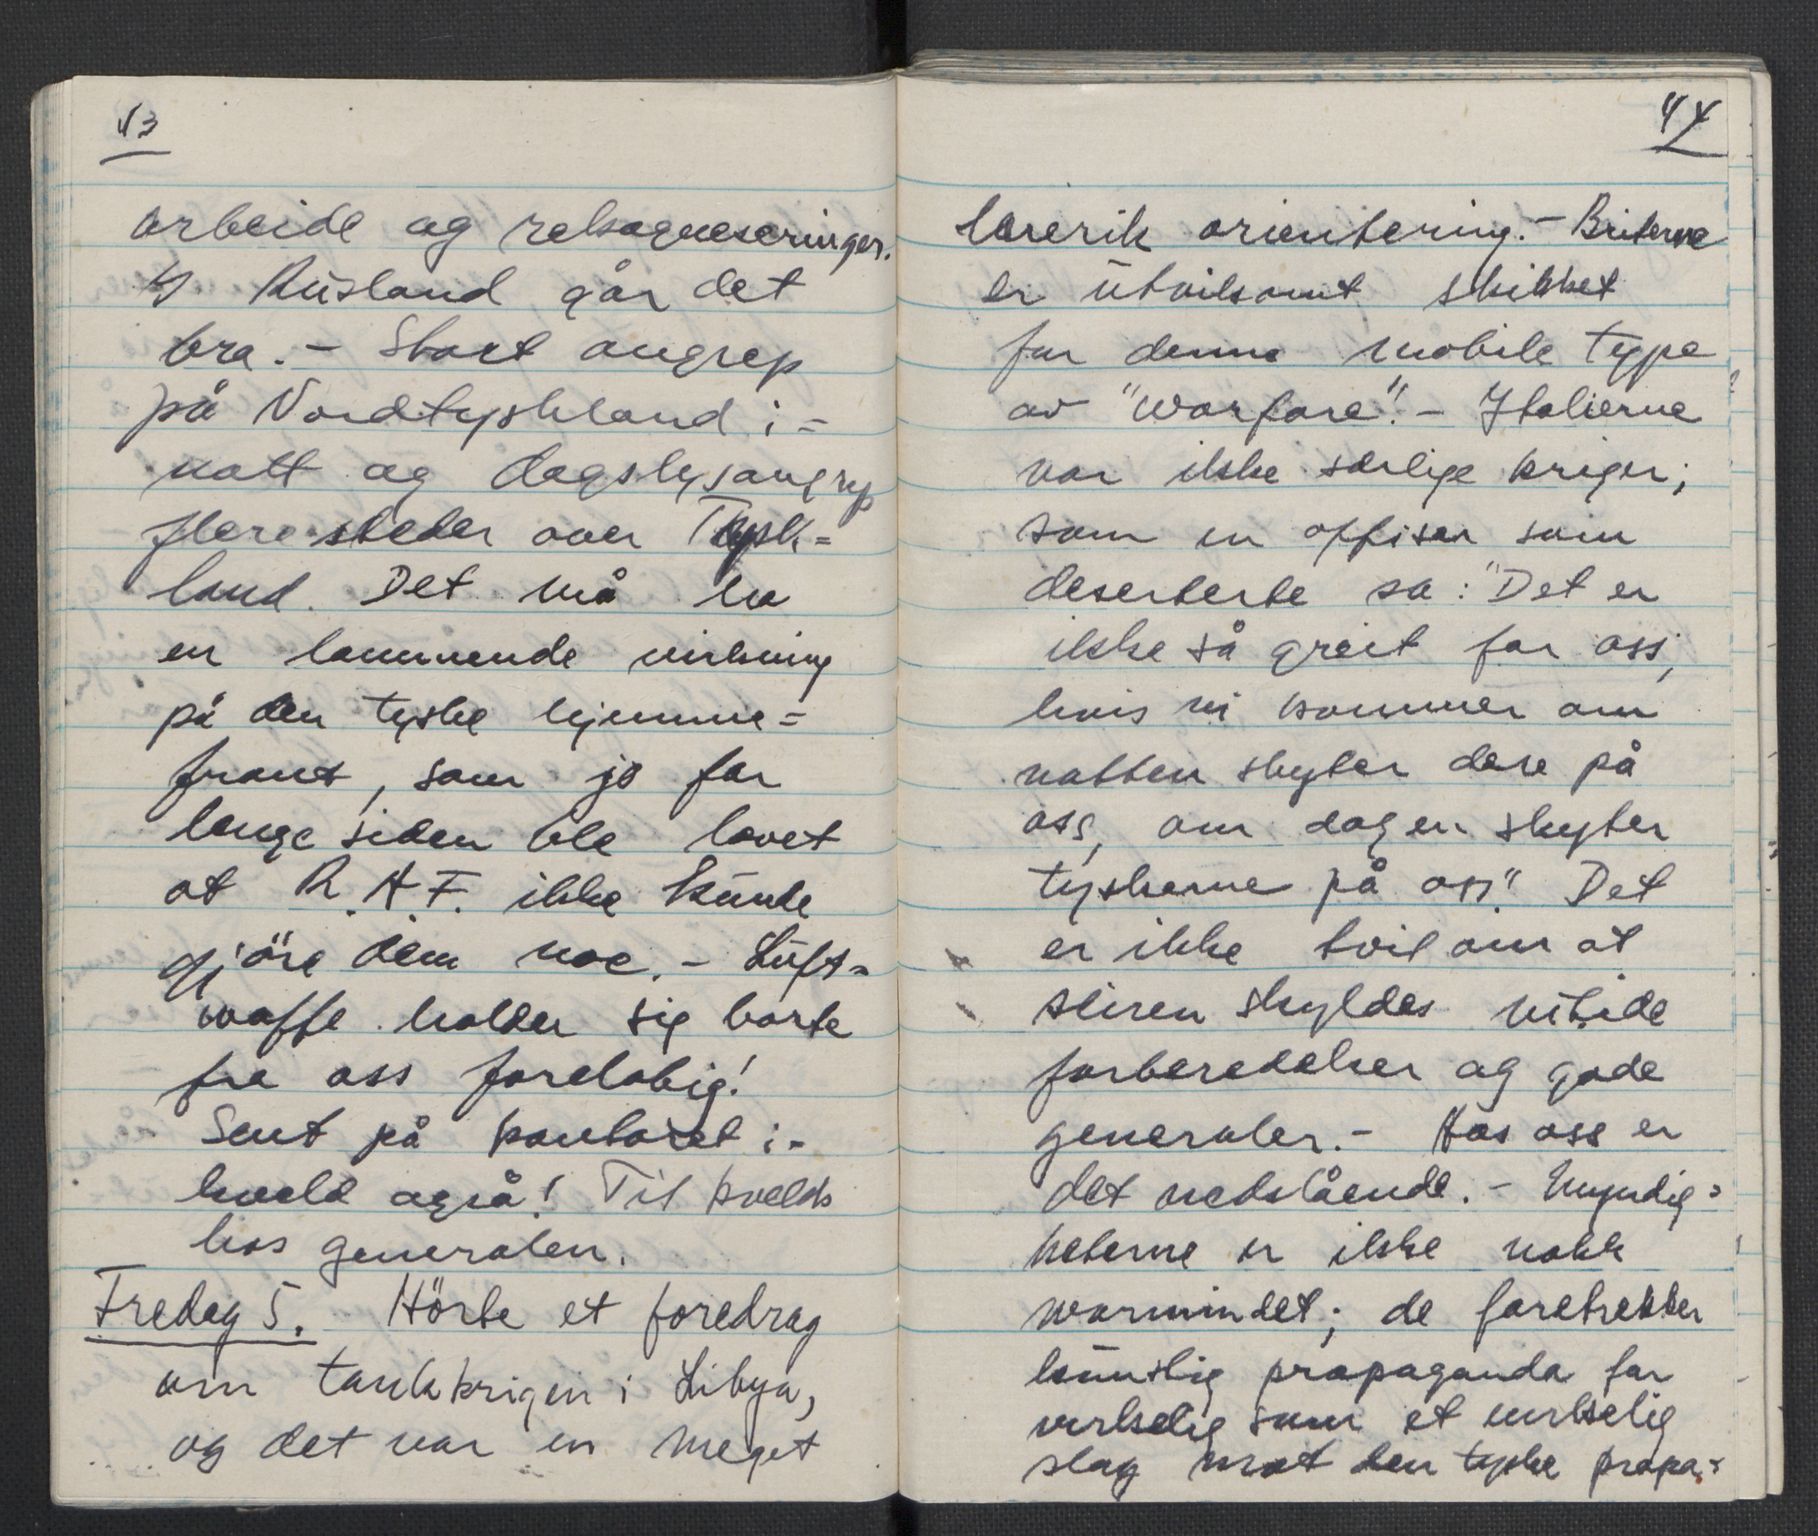 43
arbeide og rekognoseringer.
I Rusland går det
bra. - Stort angrep
på Nordtyskland i=
natt og dagslysangrep
flere steder over Tysk=
land. Det må ha
en lammende virkning
på den tyske hjemme=
front, som jo for
lenge siden ble lovet
at R.A.F. ikke kunde
gjöre dem noe. - Luft=
waffe holder sig borte
fra oss forelobig!
Sent på kontoret i-
kveld også! Til kvelds
hos generalen.
Fredag 5. Hörte et foredrag
om tankkrigen i Libya,
og det var en meget
44
lærerik orientering. - Briterne
er utvilsomt skikket
for denne mobile type
av "warfare". - Italierne
var ikke særlige kriger;
som en offiser som
deserterte sa: "Det er
ikke så greit for oss,
hvis vi kommer om
natten skyter dere på
oss, om dagen skyter
tyskerne på oss." Det
er ikke tvil om at
seiren skyldes nitide
forberedelser og gode
generaler. - Hos oss er
det nedslående. - Myndig=
heterne er ikke nokk
warmindet; de foretrekker
kunstig propaganda for
virkelig som et virkelig
slag mot den tyske propa-